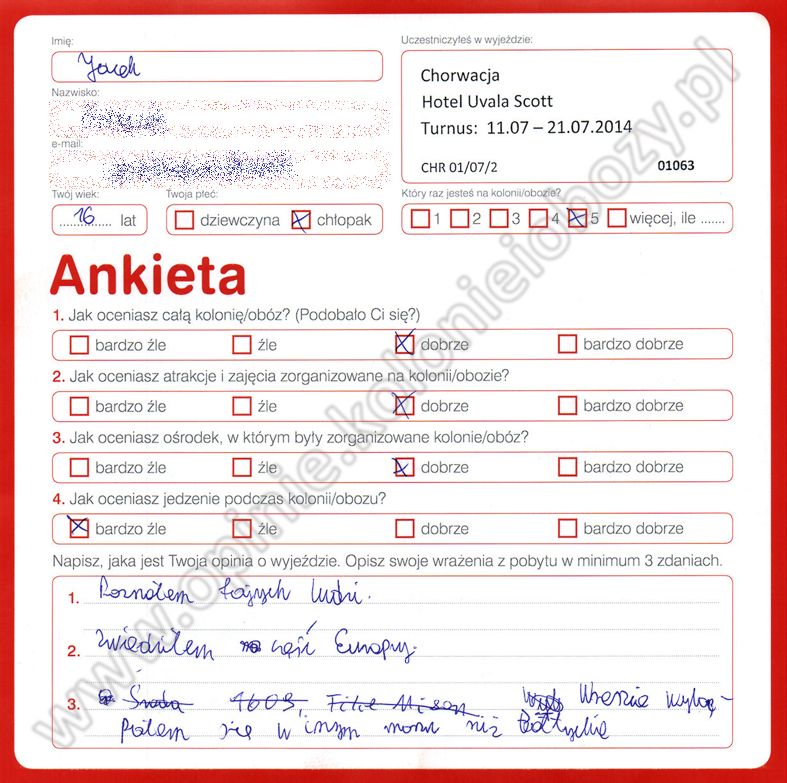 Imię:
Jacek
Uczestniczyłeś w wyjeździe:
Chorwacja
Hotel Uvala Scott
Turnus: 11.07 – 21.07.2014
CHR 01/07/2 01063
Nazwisko:
e-mail:
Twój wiek:
16 lat
Twoja płeć:
dziewczyna chłopak
Który raz jesteś na kolonii/obozie?
1 2 3 4 5 więcej, ile .......
Ankieta
1. Jak oceniasz całą kolonię/obóz? (Podobało Ci się?)
bardzo źle źle dobrze bardzo dobrze
2. Jak oceniasz atrakcje i zajęcia zorganizowane na kolonii/obozie?
bardzo źle źle dobrze bardzo dobrze
3. Jak oceniasz ośrodek, w którym były zorganizowane kolonie/obóz?
bardzo źle źle dobrze bardzo dobrze
4. Jak oceniasz jedzenie podczas kolonii/obozu?
bardzo źle źle dobrze bardzo dobrze
Napisz, jaka jest Twoja opinia o wyjeździe. Opisz swoje wrażenia z pobytu w minimum 3 zdaniach.
1. Poznałem fajnych ludzi.
2. Zwiedziłem część Europy.
3. Środa 1609, Wreszcie wyką-
pałem się w innym morzu niż Bałtyckie
www.opinie.kolonieiobozy.pl